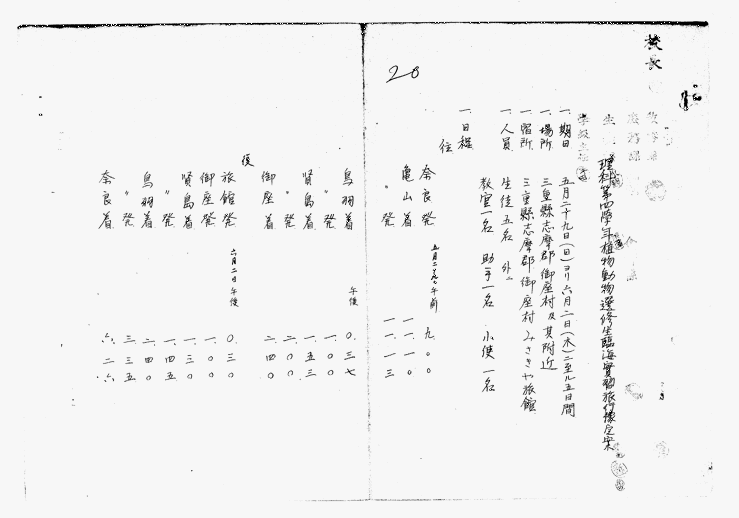 校長
20
理科第四学年植物動物選修生臨海實習旅行豫定案
一、期日 五月二十九日(日)ヨリ六月二日(木)ニ至ル五日間
一、場所 三重縣志摩郡御座村及其附近
一、宿所 三重縣志摩郡御座村みさきや旅館
一、人員 生徒五名 外ニ
教官一名 助手一名 小使一名
一、日程
往
奈良発 五月二十九日午前 九、〇〇
亀山着 一一、一〇
〃発 一一、一三
鳥羽着 午後 〇、三七
〃発 一、〇〇
賢島着 一、五三
〃発 二、〇〇
御座着 二、四〇
復
旅館発 六月二日午後 〇、三〇
御座発 一、〇〇
賢島着 一、三〇
〃発 一、四五
鳥羽着 二、四〇
〃発 三、三五
奈良着 六、二六